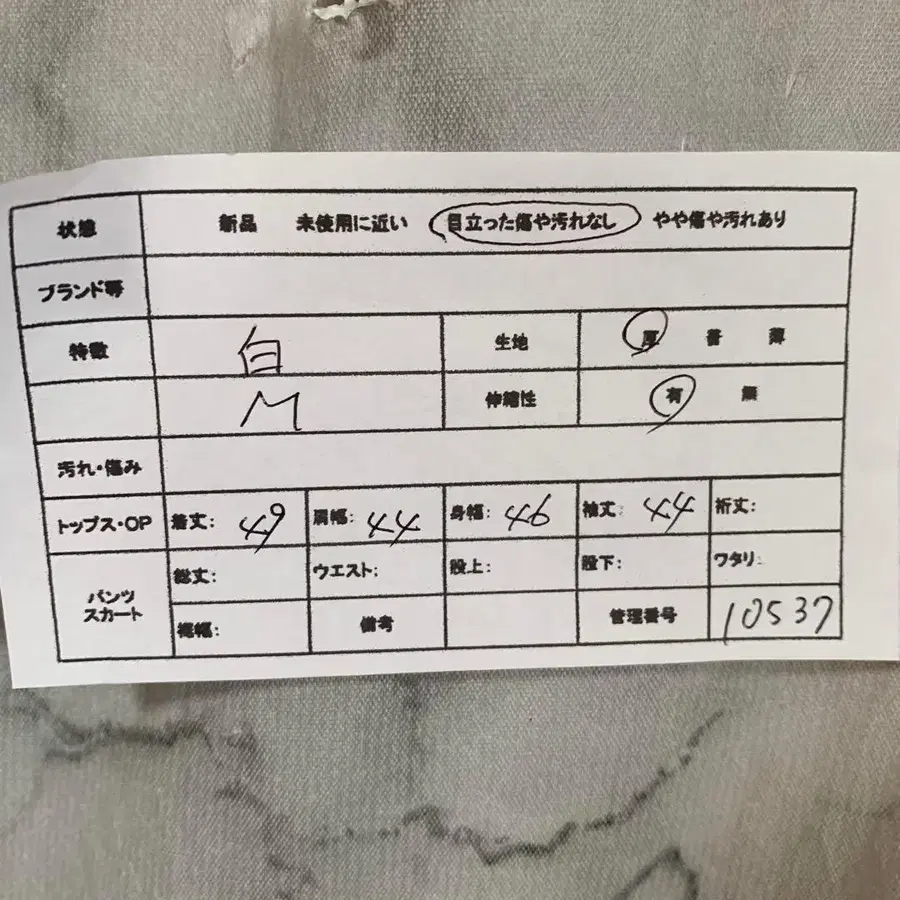 状態 新品 未使用に近い 目立った傷や汚れなし やや傷や汚れあり
ブランド等
特徴 白 生地 厚 普 薄
M 伸縮性 有 無
汚れ・傷み
トップス・OP 着丈: 49 肩幅: 44 身幅: 46 袖丈: 44 裄丈:
パンツ スカート 総丈: ウエスト: 股上: 股下: ワタリ:
裾幅: 備考 管理番号 10537